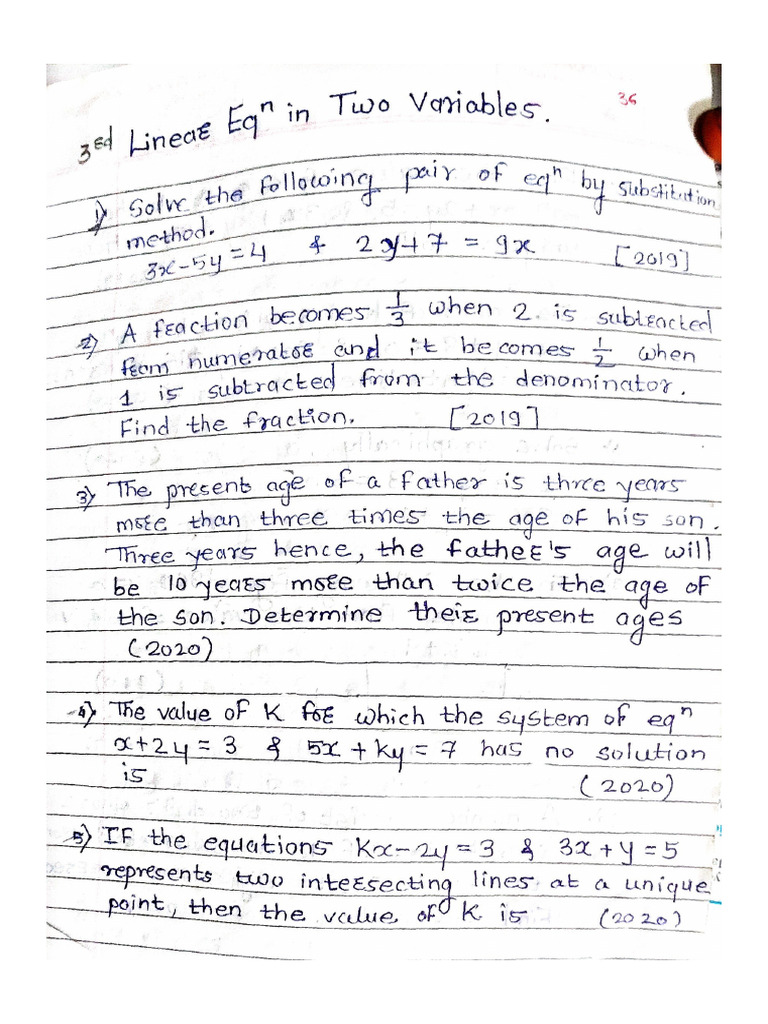 36
3rd Linear Eqn in Two Variables.
1) Solve the following pair of eqn by substitution
method.
3x-5y=4 & 2y+7=9x [2019]
2) A fraction becomes 1/3 when 2 is subtracted
from numerator and it becomes 1/2 when
1 is subtracted from the denominator.
Find the fraction. [2019]
3) The present age of a father is three years
more than three times the age of his son.
Three years hence, the father's age will
be 10 years more than twice the age of
the son. Determine their present ages
(2020)
4) The value of K for which the system of eqn
x+2y=3 & 5x+ky=7 has no solution
is (2020)
5) IF the equations Kx-2y=3 & 3x+y=5
represents two intersecting lines at a unique
point, then the value of K is (2020)